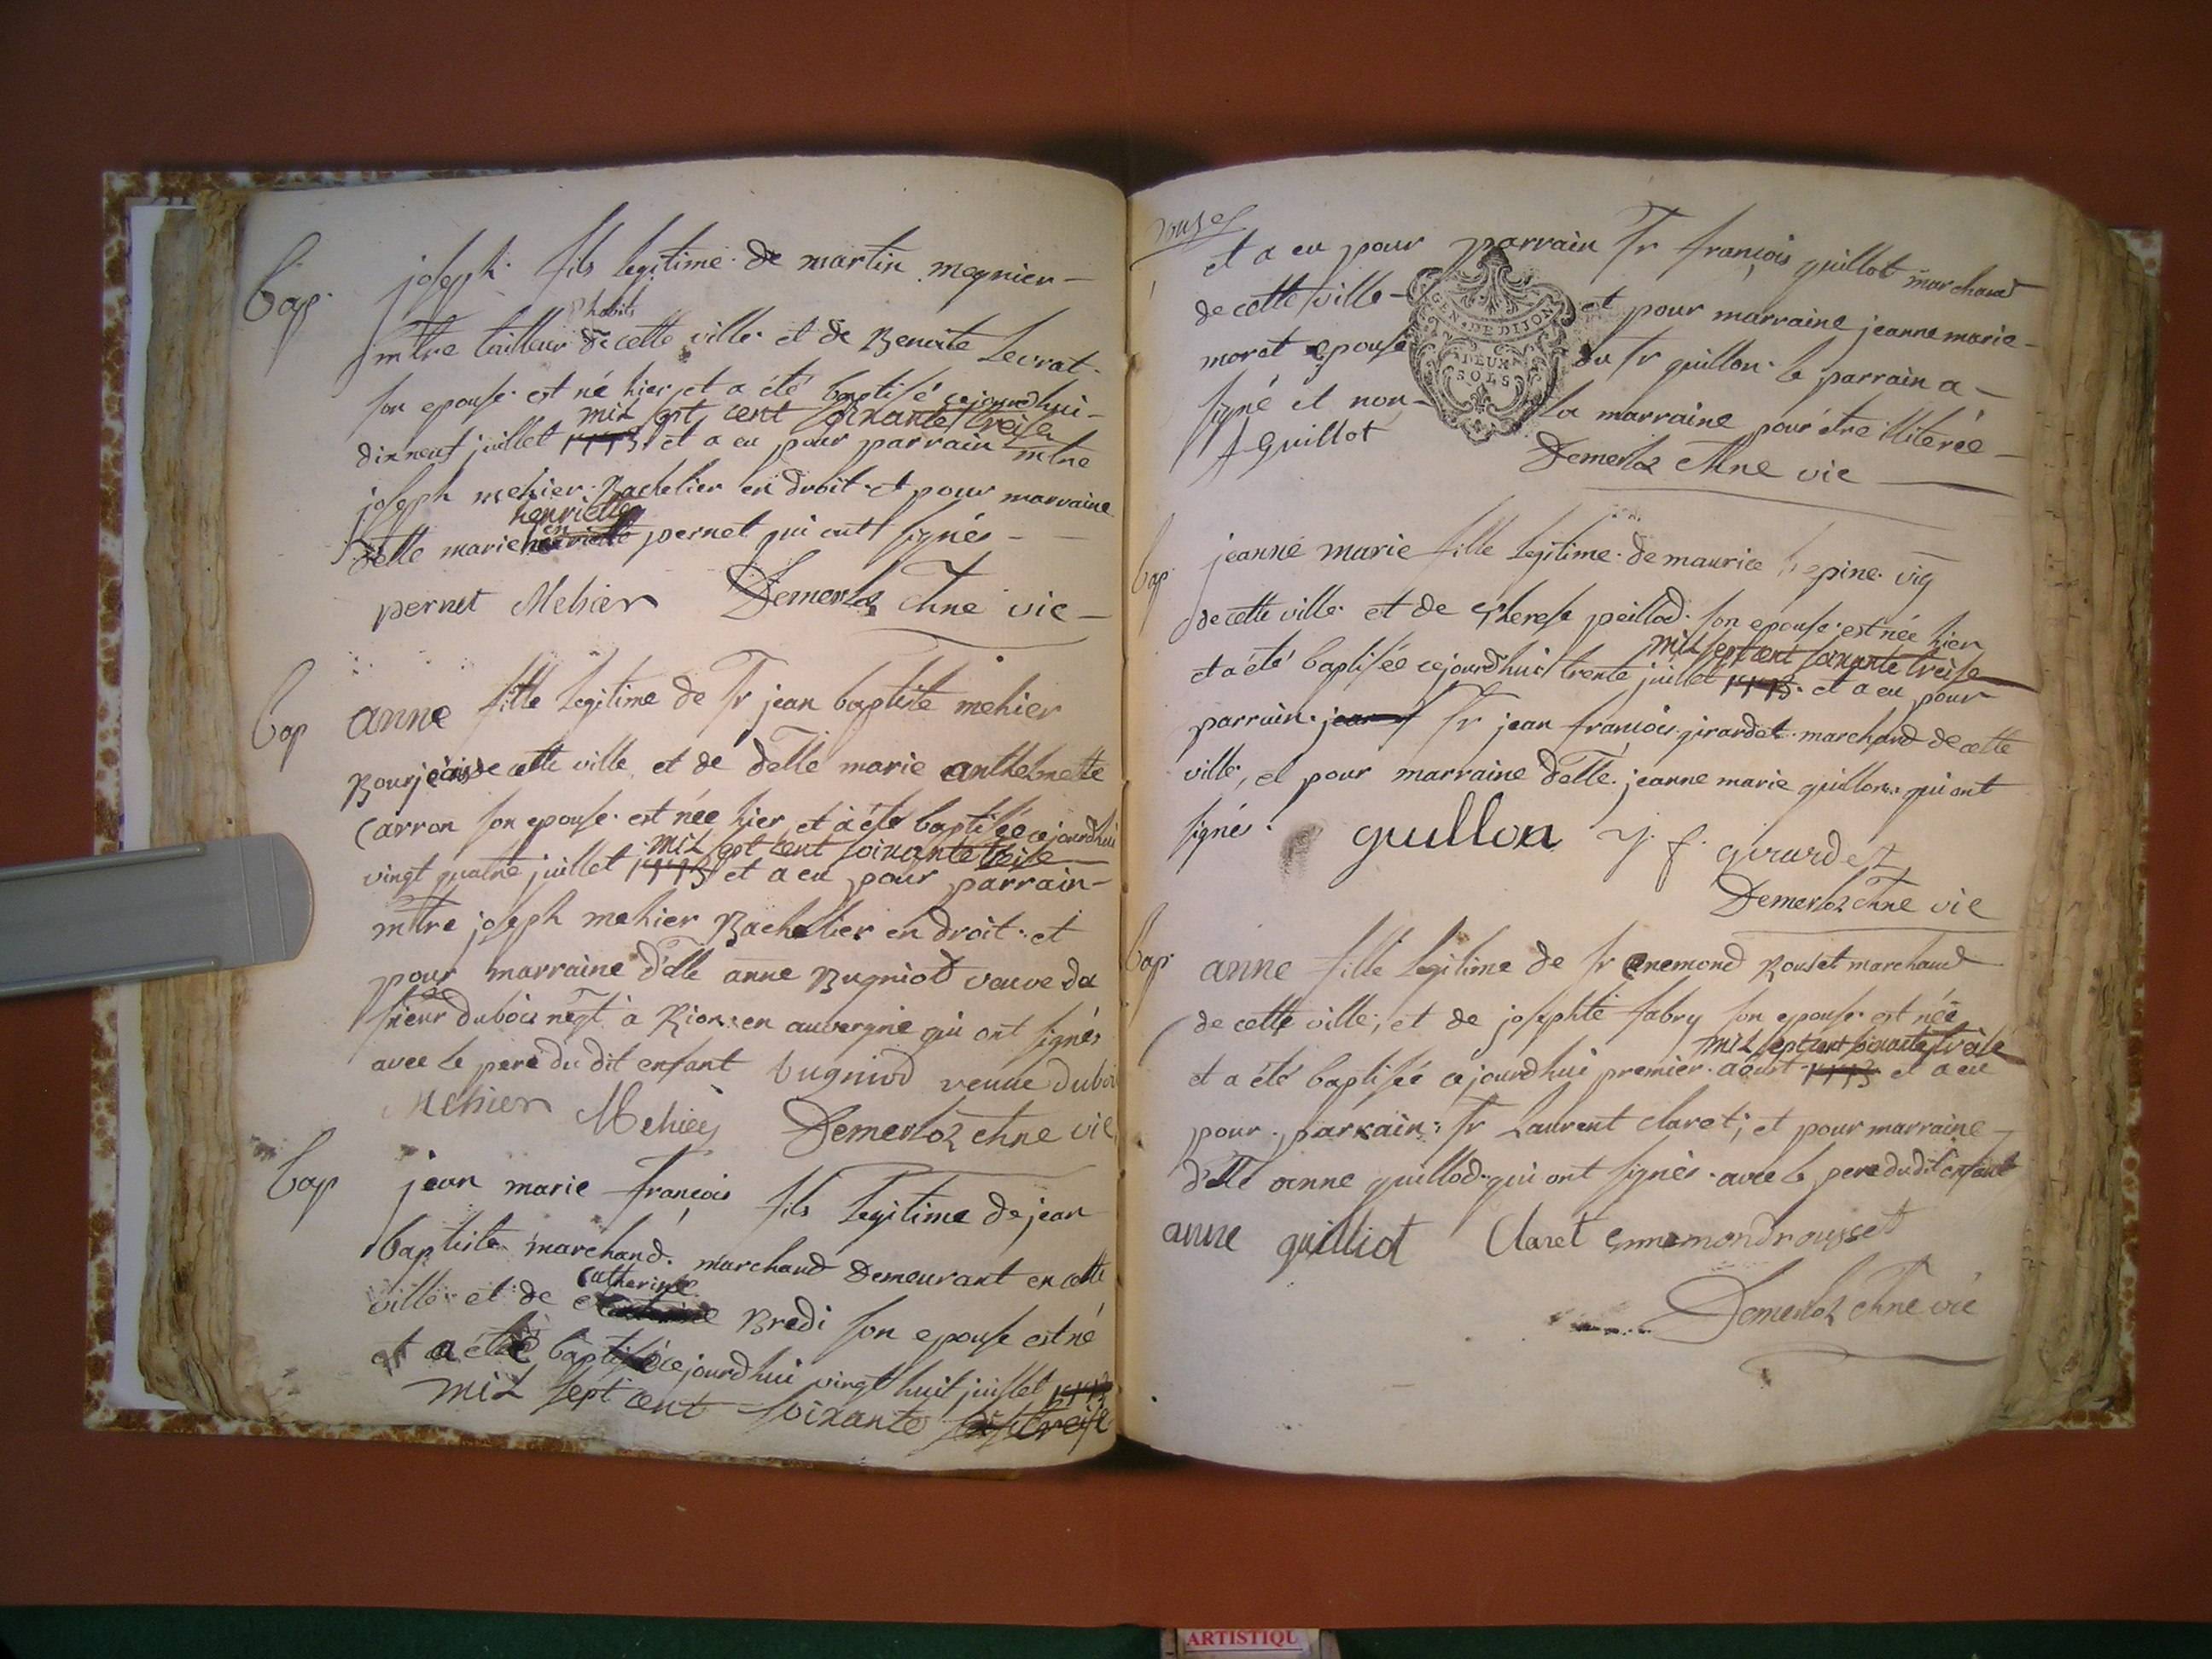 Bap.
joseph fils legitime de martin megnier -
d habits
mtre tailleur de cette ville et de Benoite Levrat.
son epouse est né hier et a été baptisé cejourdhui -
mil sept cent soixante treise
dixneuf juillet 1773 et a eu pour parrain mtre
joseph mehier Bachelier en droit et pour marraine
henriette
delle marie henriette pernet qui ont signés -
pernet Mehier Demerloz chne vic -
Bap
anne fille legitime de Sr jean baptiste mehier
Bourjeois de cette ville et de delle marie anthelmette
Carron son epouse est née hier et a été baptisée cejourdhui
mil sept cent soixante treise
vingt quatre juillet 1773 et a eu pour parrain -
mtre joseph mehier Bachelier en droit et
pour marraine delle anne Bugniod veuve de
sieur dubois negt à Riom en auvergne qui ont signés
avec le pere du dit enfant bugniod veuve duboi
Mehier Mehier Demerloz chne vic
Bap
jean marie françois fils legitime de jean
baptiste marchand marchand Demeurant en cette
Catherine
ville et de Bredi son epouse est né
et a été baptisé cejourdhui vingt huit juillet 1773
mil sept cent soixante treise
et a eu pour parrain Sr françois guillot marchand
de cette ville - et pour marraine jeanne marie -
moret epouse du Sr guillon. le parrain a -
signé et non - la marraine pour être illiterée -
GEN. DE DIJON
DEUX
SOLS
f Guillot
Demerloz chne vic
Bap.
jeanne marie fille legitime de maurice lepine vig
de cette ville et de therese peillod son epouse est née hier
mil sept cent soixante treise
et a été baptisée cejourdhui trente juillet 1773 et a eu pour
parrain jean Sr jean françois girardet marchand de cette
ville, et pour marraine delle jeanne marie guillon qui ont
signés. guillon J. f. girardet
Demerloz chne vic
Bap.
anne fille legitime de Sr enemond Rouset marchand
de cette ville, et de josephte fabry son epouse est née
mil sept cent soixante treise
et a été baptisée cejourdhui premier aoust 1773 et a eu
pour parrain Sr Laurent claret; et pour marraine -
delle anne guillod qui ont signés avec le pere dudit enfant
anne guilliot Claret Ennemond rousset
Demerloz chne vic
ARTISTIQU